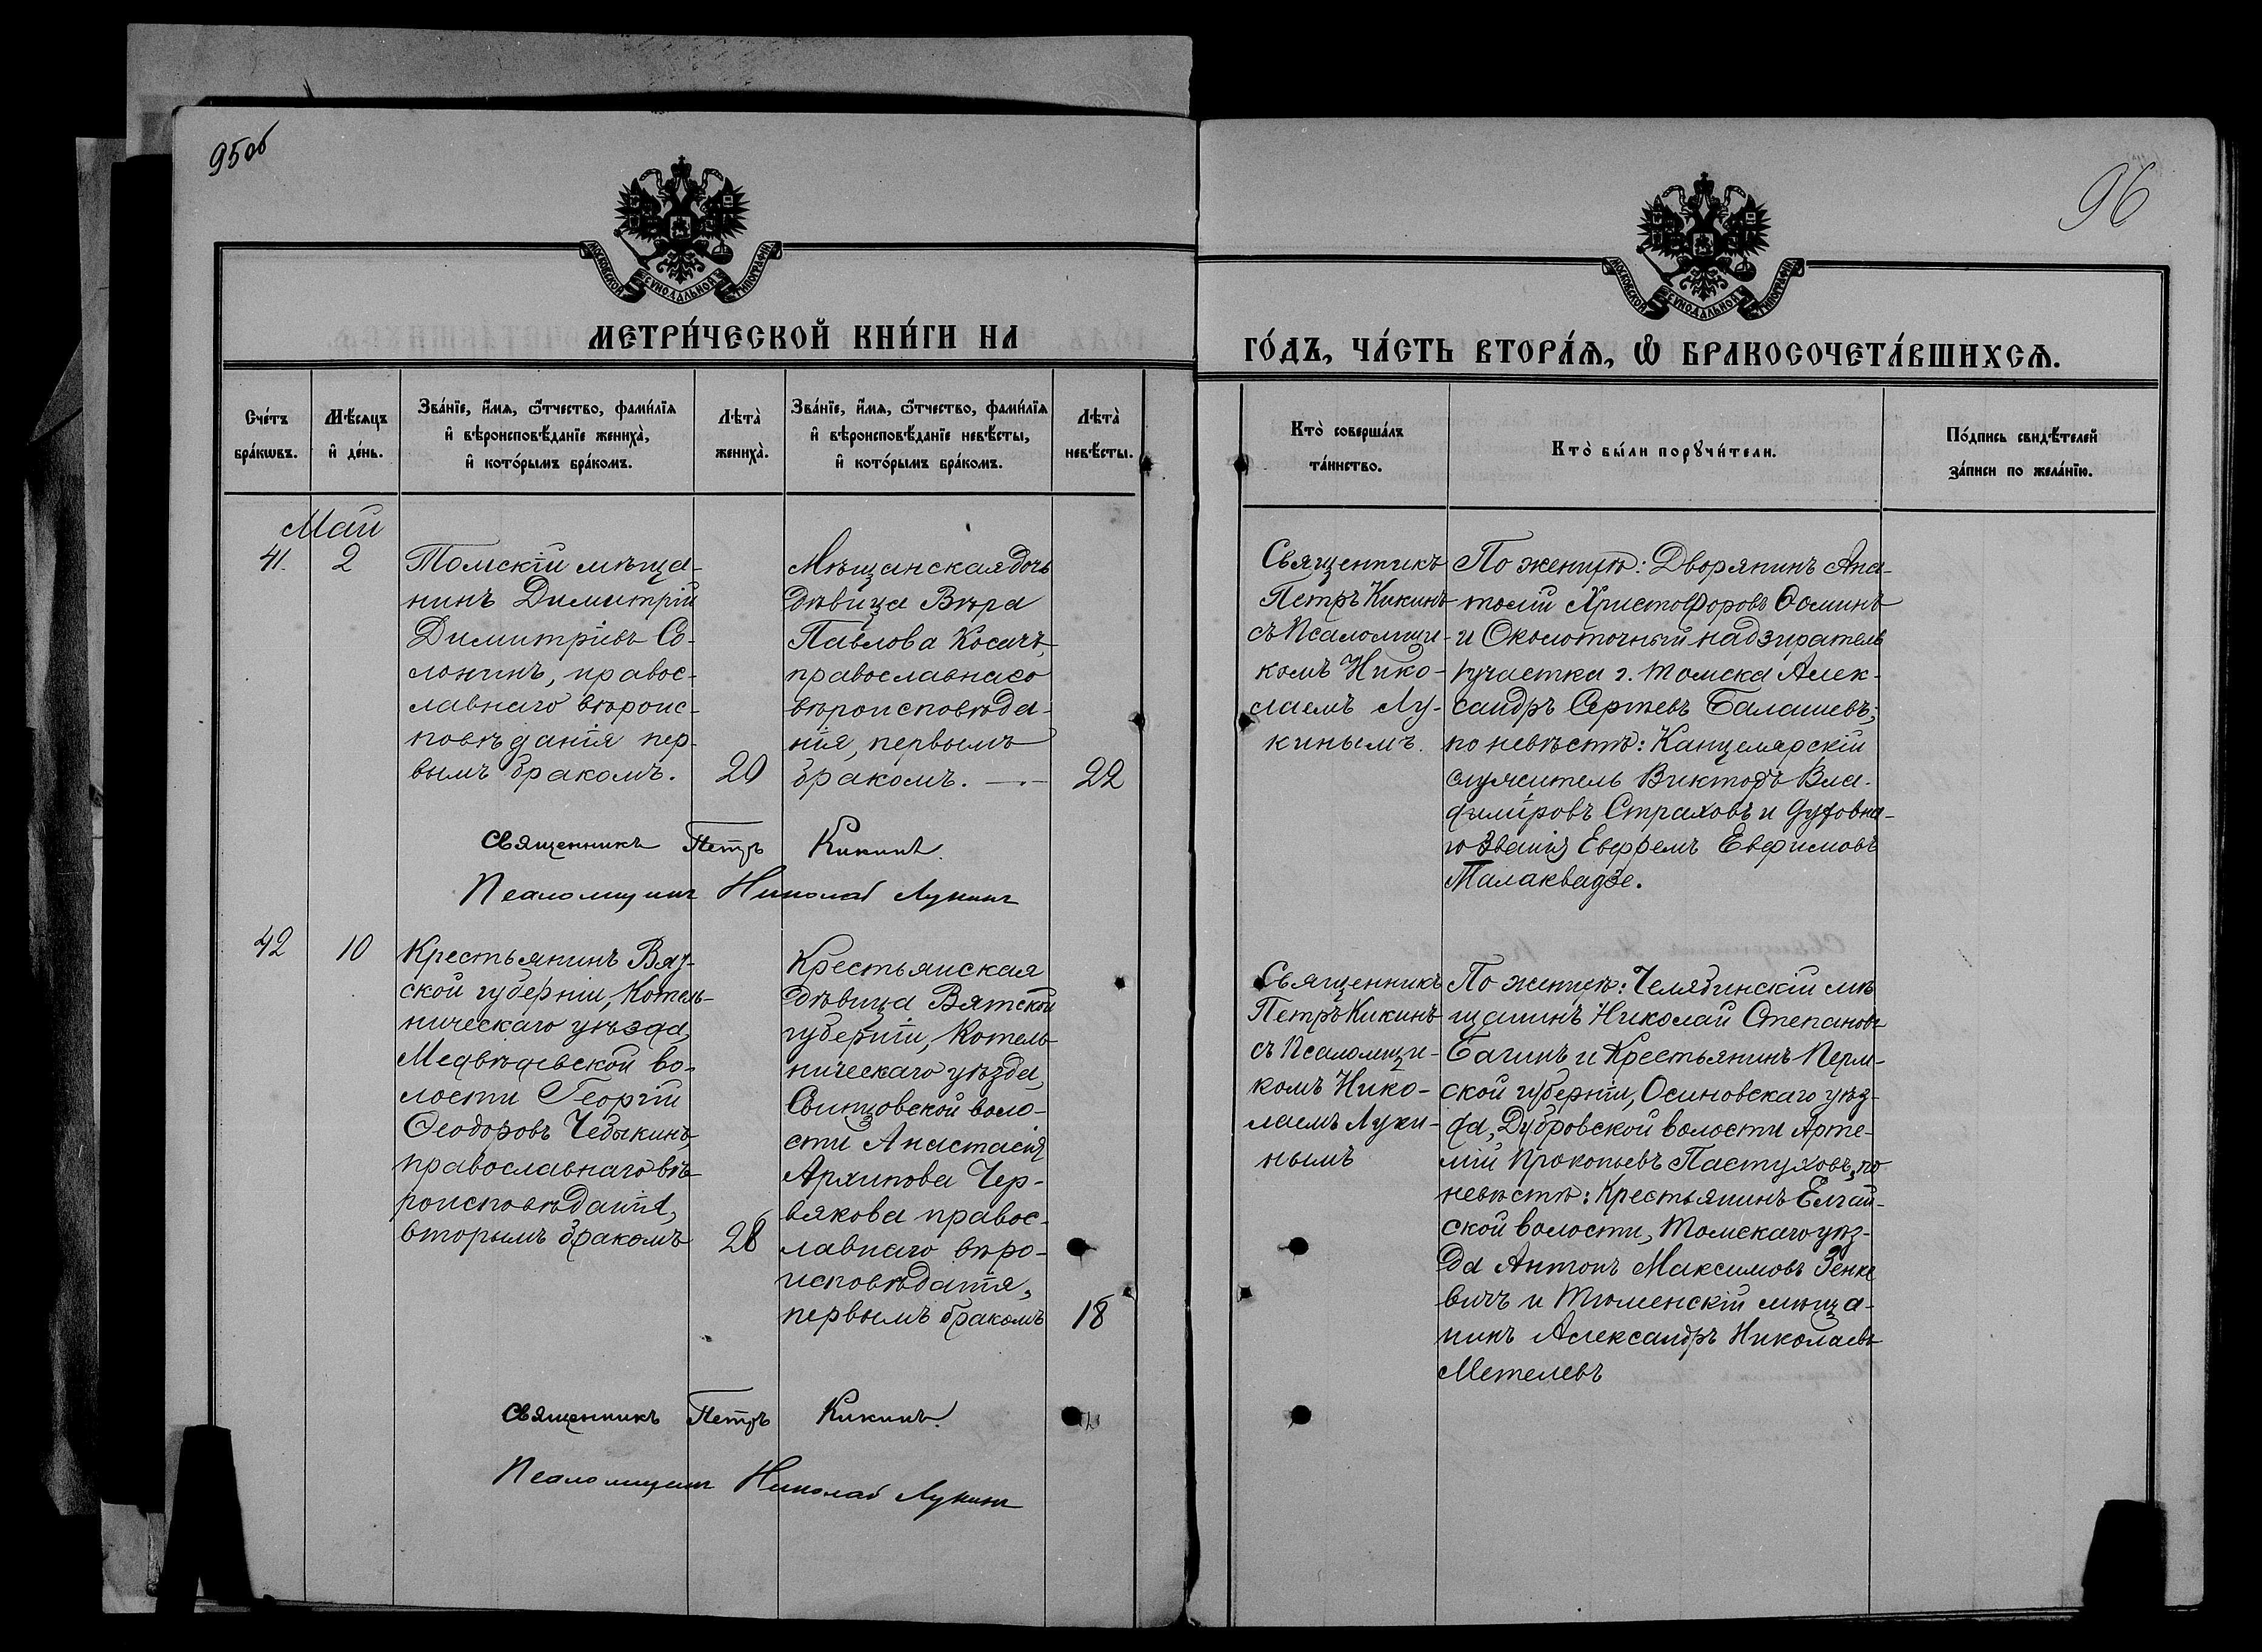 95об
96
МОСКОВСКОЙ СѴНОДАЛЬНОЙ ТИПОГРАФІИ
МОСКОВСКОЙ СѴНОДАЛЬНОЙ ТИПОГРАФІИ
МЕТРИ́ЧЕСКОЙ КНИ́ГИ НА
ГО́ДЪ, ЧА́СТЬ ВТОРА́Ѧ, Ѽ БРАКОСОЧЕТА́ВШИХСѦ.
Сче́тъ
бра́кѡвъ.
Мѣ́сяцъ
и҆ де́нь.
Зва́нїе, и҆́мѧ, ѻ҆́тчество, фами́лїѧ
и҆ вѣроисповѣ́данїе жениха̀,
и҆ кото́рымъ бра́комъ.
Лѣта̀
жениха̀.
Зва́нїе, и҆́мѧ, ѻ҆́тчество, фами́лїѧ
и҆ вѣроисповѣ́данїе невѣ́сты,
и҆ кото́рымъ бра́комъ.
Лѣта̀
невѣ́сты.
Кто̀ соверша́лъ
та́инство.
Кто̀ бы́ли порꙋчи́тели.
По́дпись свидѣ́телей
за́писи по жела́нїю.
Май
41.
2
Томскій мѣща-
нинъ Димитрій
Димитріевъ Со-
лонинъ, правос-
лавнаго вѣроис-
повѣданія пер-
вымъ бракомъ.
20
Мѣщанская дочь
дѣвица Вѣра
Павлова Косачъ,
православнаго
вѣроисповѣда-
нія, первымъ
бракомъ. —.—
22
Священникъ
Петръ Кикинъ
съ Псаломщи-
комъ Нико-
лаемъ Лу-
кинымъ.
По женихѣ: Дворянинъ Ана-
толій Христофоровъ Ѳоминъ
и Околоточный надзиратель
участка г. Томска Алек-
сандръ Сергѣевъ Балашевъ;
по невѣстѣ: Канцелярскій
служитель Викторъ Вла-
диміровъ Страховъ и духовна-
го званія Евфремъ Евфимовъ
Талаквадзе.
Священникъ Петръ Кикинъ.
Псаломщикъ Николай Лукинъ
42
10
Крестьянинъ Вят-
ской губерніи, Котель-
ническаго уѣзда,
Медвѣдевской во-
лости Георгій
Ѳеодоровъ Чебыкинъ
православнаго вѣ-
роисповѣданія,
вторымъ бракомъ
28
Крестьянская
дѣвица Вятской
губерніи, Котель-
ническаго уѣзда
Свитцовской воло-
сти Анастасія
Архипова Чер-
вякова правос-
лавнаго вѣро-
исповѣданія,
первымъ бракомъ
18
Священникъ
Петръ Кикинъ
съ Псаломщи-
комъ Нико-
лаемъ Луки-
нымъ
По женихѣ: Челябинскій мѣ
щанинъ Николай Степановъ
Багинъ и Крестьянинъ Перм-
ской губерніи, Осиновскаго уѣз-
да, Дубровской волости Арте-
мій Прокопьевъ Пастуховъ, по
невѣстѣ: Крестьянинъ Елгай-
ской волости, Томскаго уѣз-
да Антонъ Максимовъ Зенке
вичъ и Тюменскій мѣща-
нинъ Александръ Николаевъ
Метелевъ
Священникъ Петръ Кикинъ.
Псаломщикъ Николай Лукинъ